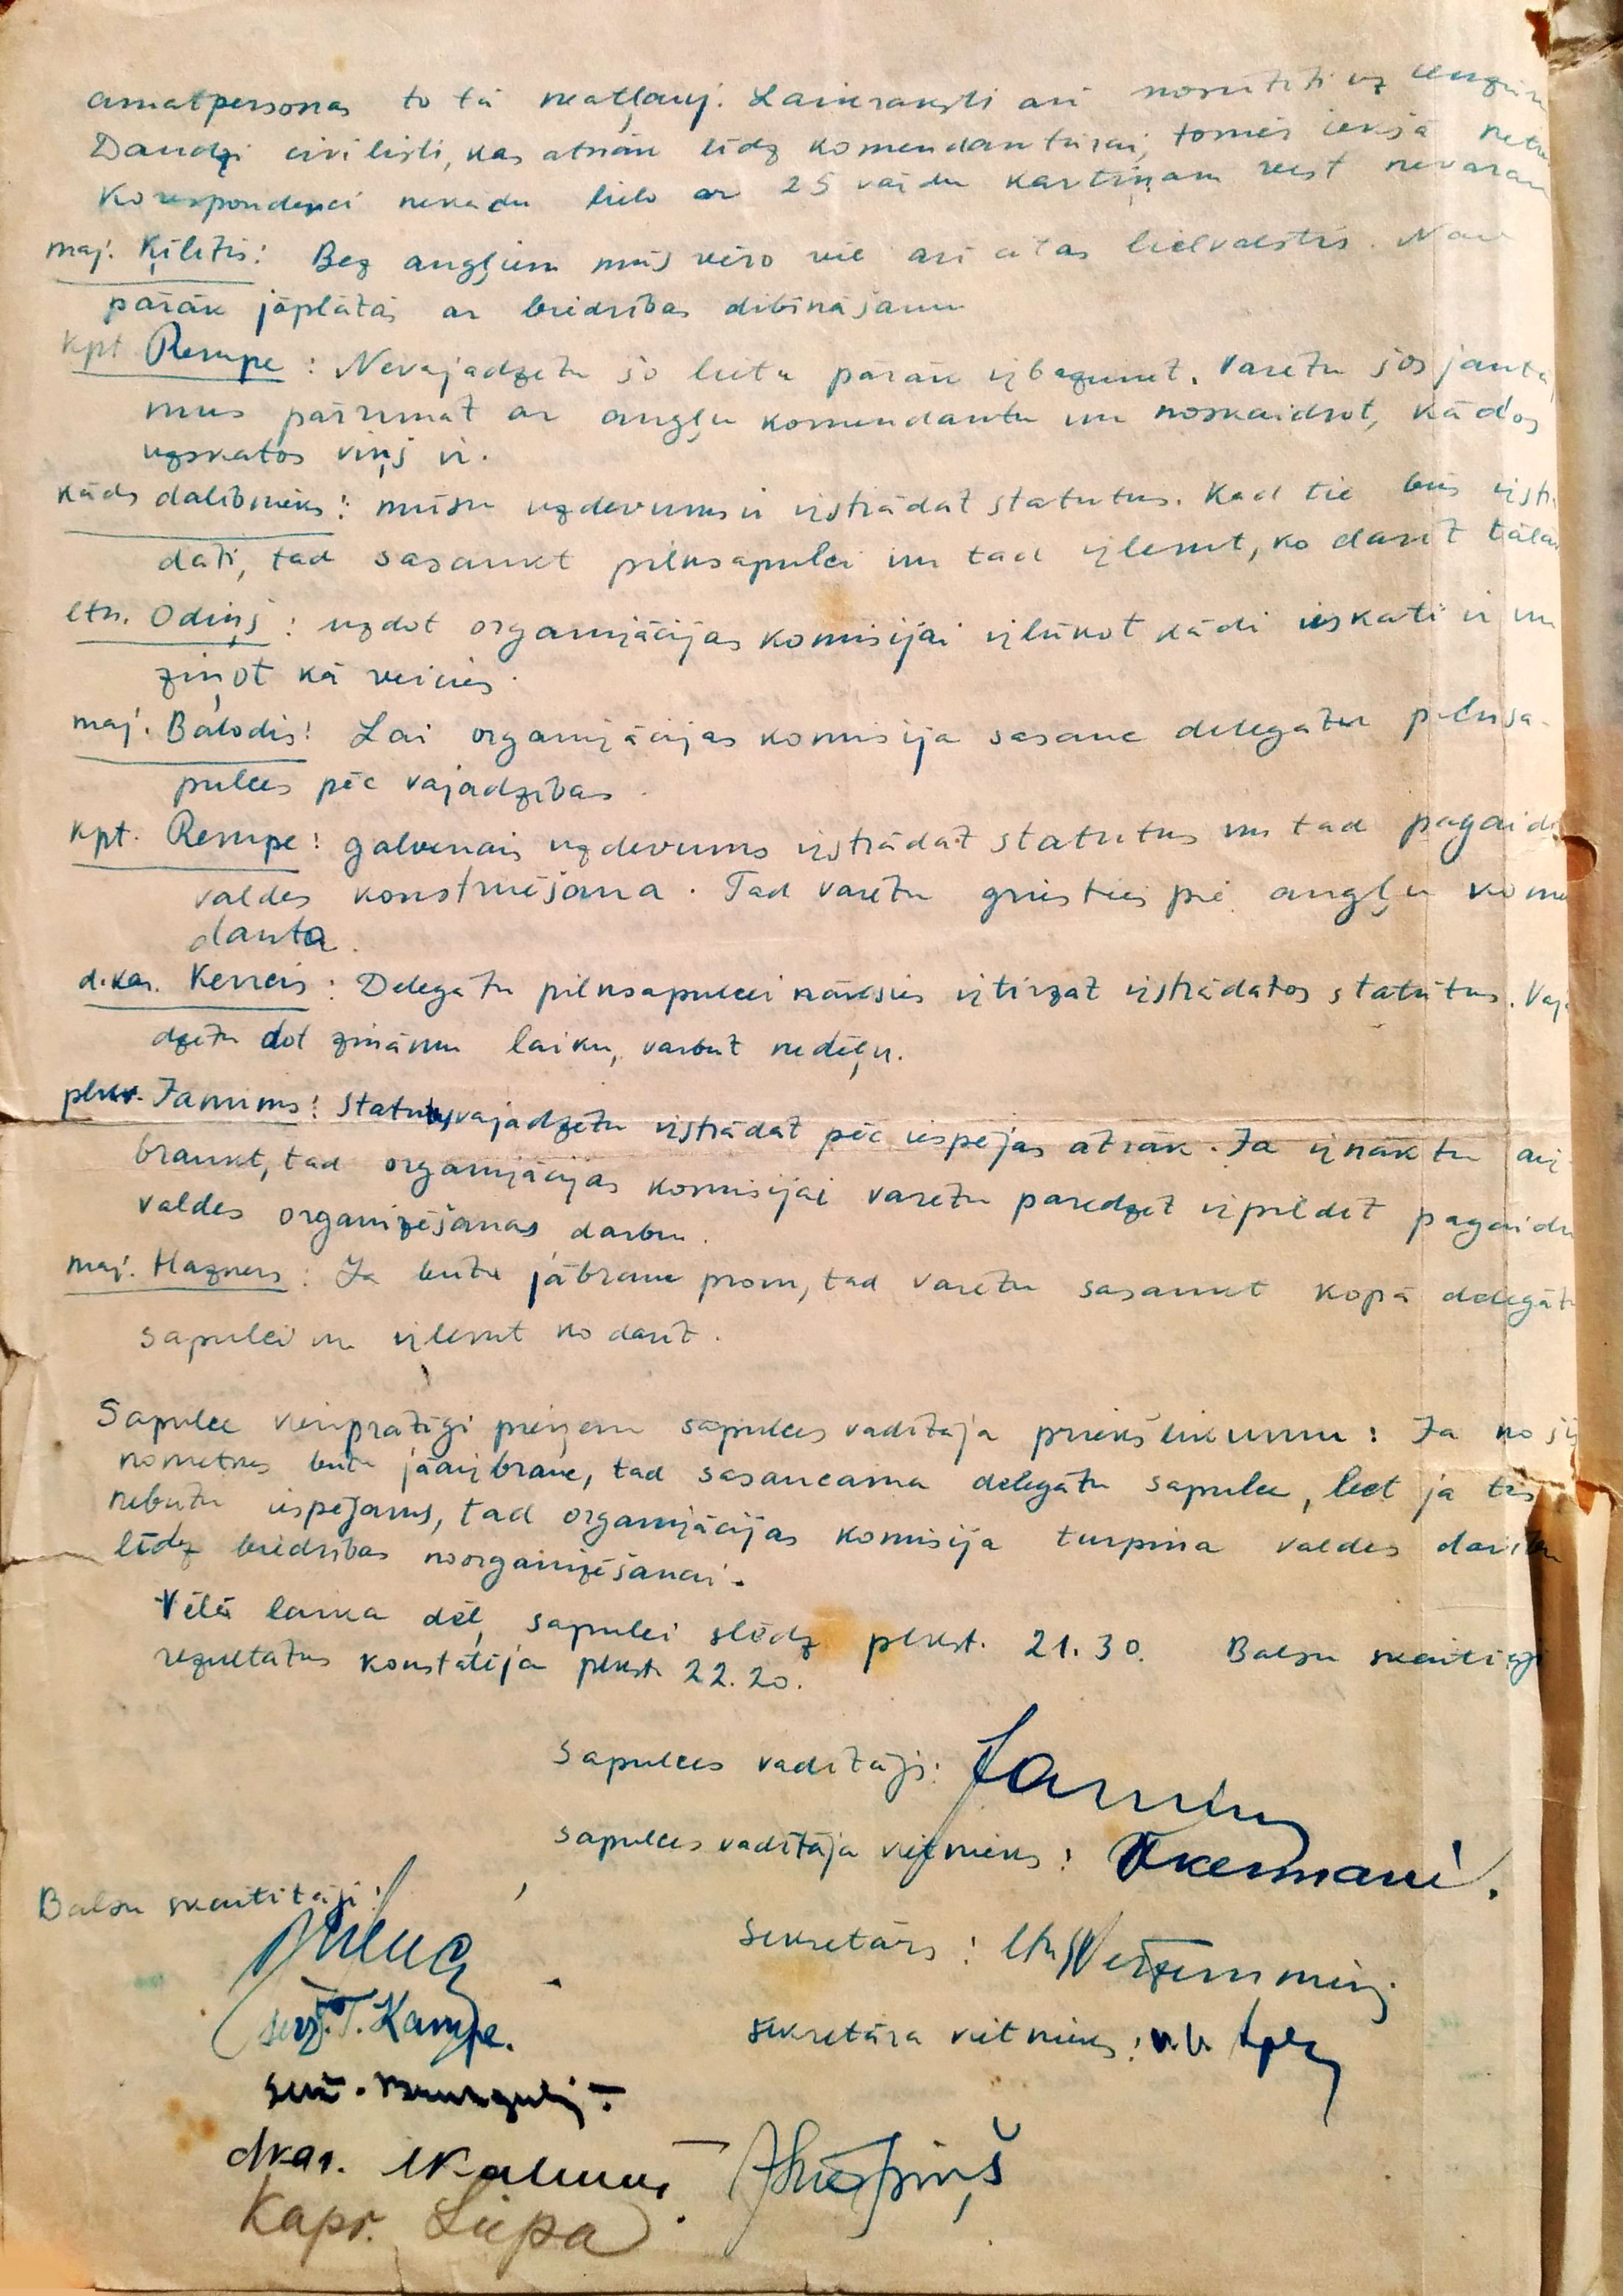 amatpersonas to tā neatļauj. Laikraksti arī nosūtīti uz
Daudzi civilisti, kas atnāk līdz komendantūrai, tomēr iekšā
Korespondenci nekādu lielo ar 25 vārdu kartiņam vest nevaram
maj. Ķīlītis: Bez angļiem mūs vēro vēl arī citas lielvalstis. Nav
pārāk jāplātās ar biedrības dibināšanu
kpt Rempe: Nevajadzētu šo lietu pārāk izbazunet. Varētu šos jautā
mus pārrunāt ar angļu komendantu un noskaidrot, kādos
uzskatos viņš ir.
kāds dalībnieks: mūsu uzdevums ir izstrādāt statutus. Kad tie būs izstrā
dāti, tad sasaukt pilnsapulci un tad izlemt, ko darīt tālāk
ltn. Odiņš: uzdot organizācijas komisijai izlūkot kādi ieskati ir un
ziņot kā veicies.
maj. Balodis: Lai organizācijas komisija sasauc delegātu pilnsa-
pulces pēc vajadzības.
kpt. Rempe: galvenais uzdevums izstrādāt statutus un tad pagaidu
valdes konstruēšana. Tad varētu griesties pie angļu komen
danta.
d.kar. Kerreis: Delegātu pilnsapulcei nāksies iztirzāt izstrādātos statūtus. Vaja
dzētu dot zināmu laiku, varbūt nedēļu.
plkv. Janums: Statutus vajadzētu izstrādāt pēc iespējas ātrāk. Ja iznāktu aiz-
braukt, tad organizācijas komisijai varētu paredzēt izpildīt pagaidu
valdes organizēšanas darbu.
maj. Hazners: Ja būtu jābrauc prom, tad varētu sasaukt kopā delegātu
sapulci un izlemt ko darīt.
Sapulce vienprātīgi pieņem sapulces vadītāja priekšlikumu: Ja no šīs
nometnes būtu jāaizbrauc, tad sasaucama delegātu sapulce, bet ja tas
nebūtu iespējams, tad organizācijas komisija turpina valdes darbu
līdz biedrības noorganizēšanai.
Vēlā laika dēļ, sapulci slēdz plkst. 21.30. Balsu skaitītāji
rezultātus konstatēja plkst. 22.20.
Sapulces vadītājs: Janums
sapulces vadītāja vietnieks: Akermanis.
Balsu skaitītāji:
sekretārs: ltn
serž. T. Kampe.
sekretāra vietnieks: v.v.
dkar. Kalniņš
Kapr. Liepa